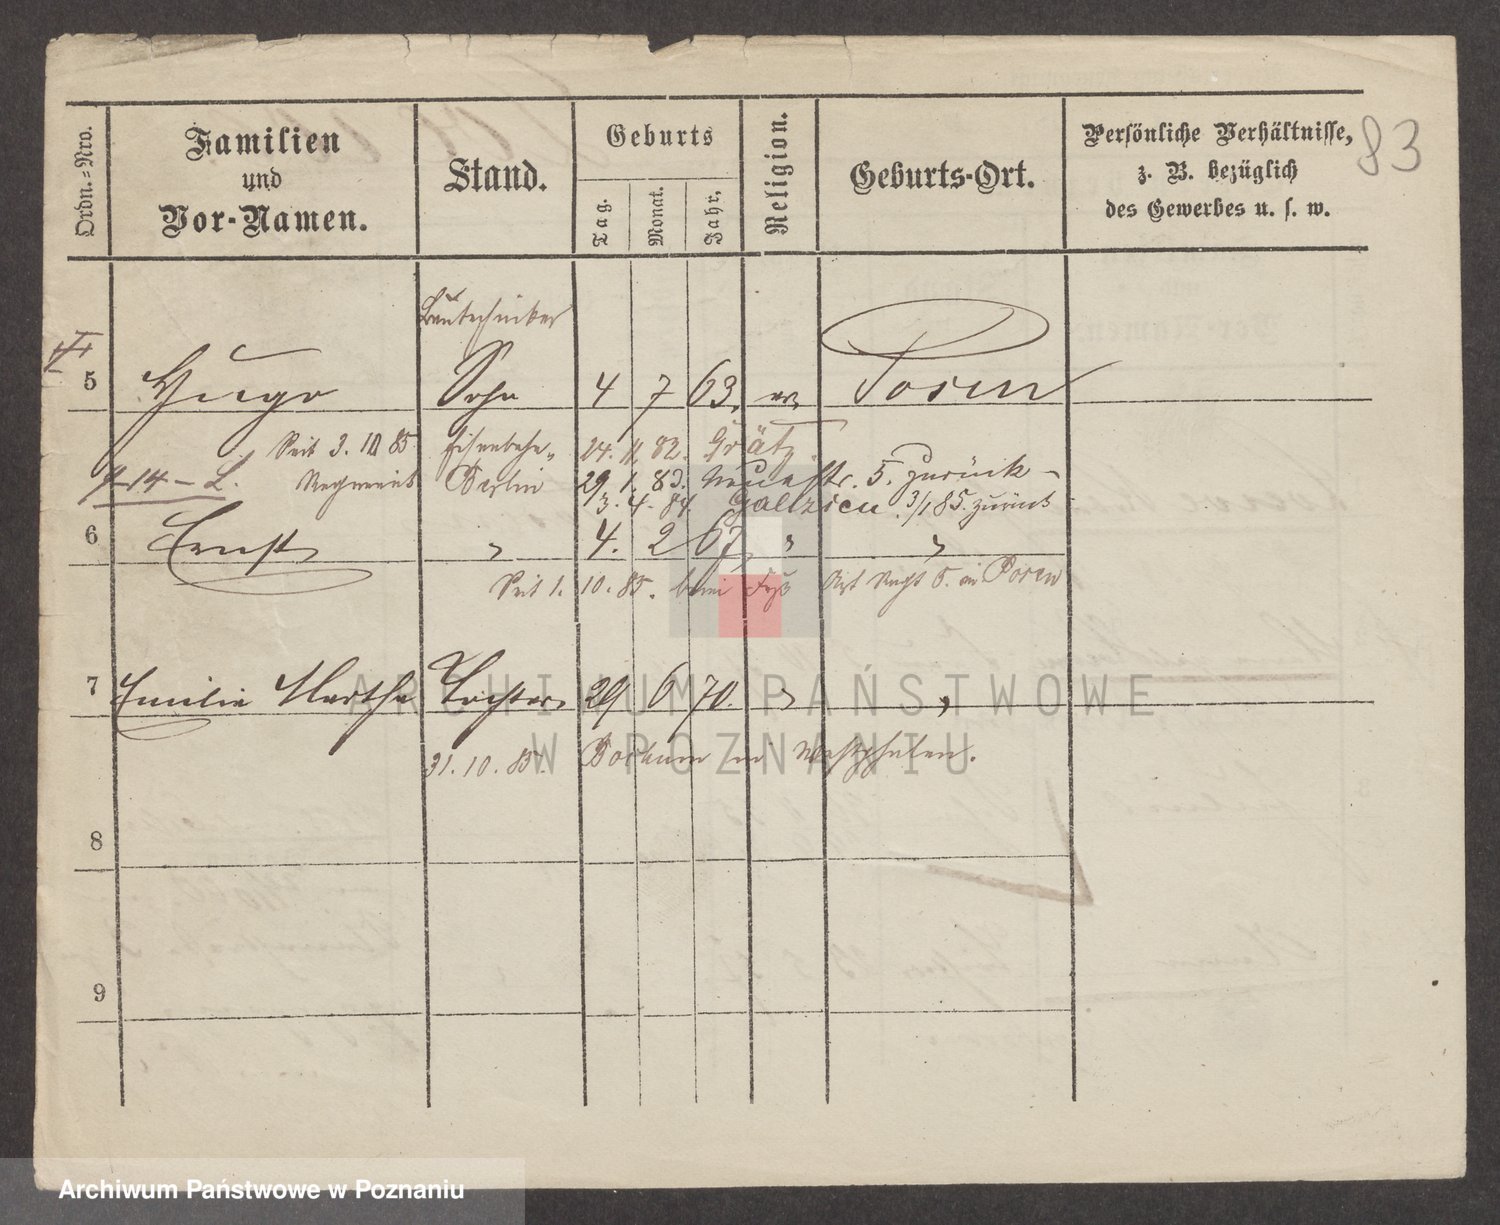 83
Ordn.-Nro. Familien und Vor-Namen. Stand. Geburts Tag. Monat. Jahr. Religion. Geburts-Ort. Persönliche Verhältnisse, z. B. bezüglich des Gewerbes u. s. w.
Bautechniker
5 Hugo Sohn 4 7 63. ev. Posen
Seit 3. 85 Eisenbahn- 24. 11. 82. Grätz.
Regiment Berlin 29 1. 83. Neuestr. 5. zurück-
13. 4. 84. Gallzien 3/1 85. zurück
6 Ernst " 4. 2 67 " "
Seit 1. 10. 85. beim Fuß Art Regt 5. in Posen
7 Emilie Martha Tochter 29 6 70. " "
31. 10. 85. Bochum in Westphalen.
8
9
ARCHIWUM PAŃSTWOWE
W POZNANIU
Archiwum Państwowe w Poznaniu